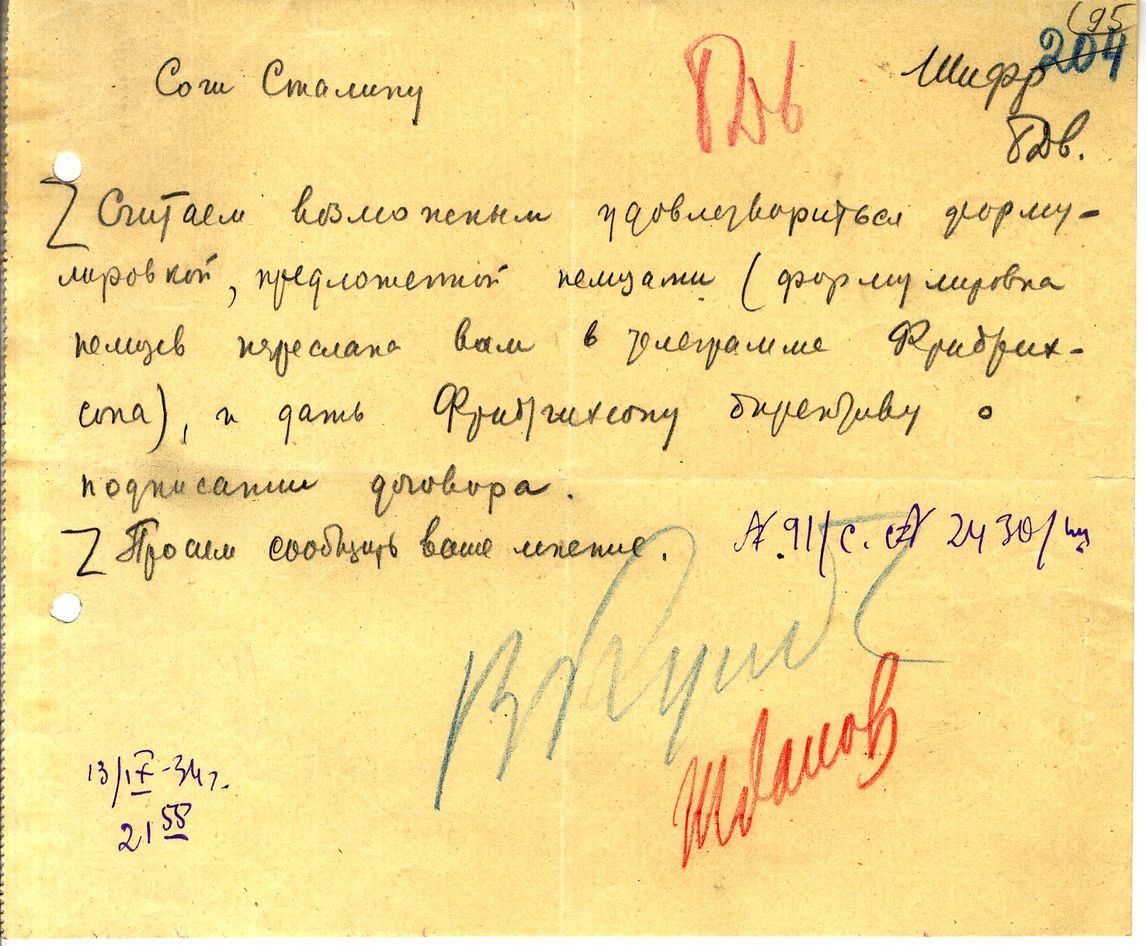 195
204
Шифр
ПДв.
Сочи Сталину
ПДв
Считаем возможным удовлетвориться форму-
лировкой, предложенной немцами (формулировка
немцев переслана вам в телеграмме Фридрих-
сона), и дать Фридрихсону директиву о
подписании договора.
Просим сообщить ваше мнение.
№ 91/с. с № 2430/ш
В Куйб
Жданов
13/IX-34 г.
21 55